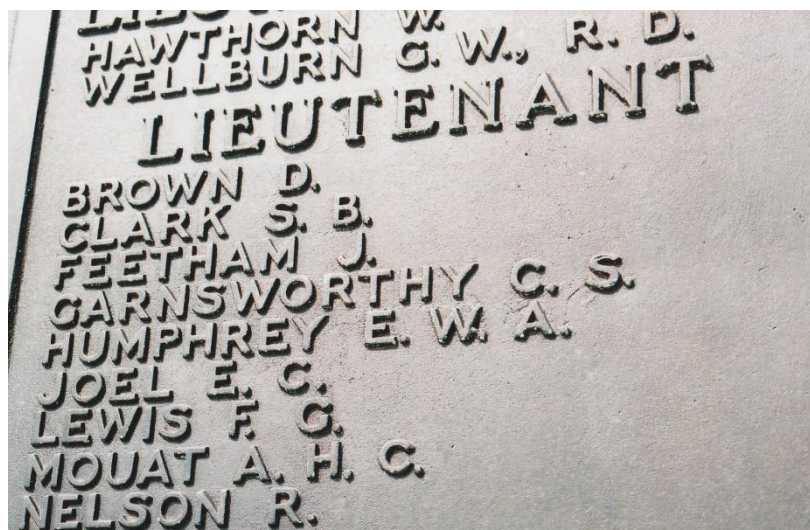 HAWTHORN W.
WELLBURN G. W., R. D.
LIEUTENANT
BROWN D.
CLARK S. B.
FEETHAM J.
GARNSWORTHY C. S.
HUMPHREY E. W. A.
JOEL E. C.
LEWIS F. G.
MOUAT A. H. C.
NELSON R.